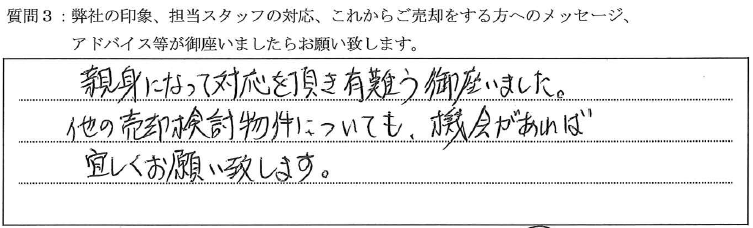 質問３：弊社の印象、担当スタッフの対応、これからご売却をする方へのメッセージ、
アドバイス等が御座いましたらお願い致します。
親身になって対応を頂き有難う御座いました。
他の売却検討物件についても、機会があれば
宜しくお願い致します。